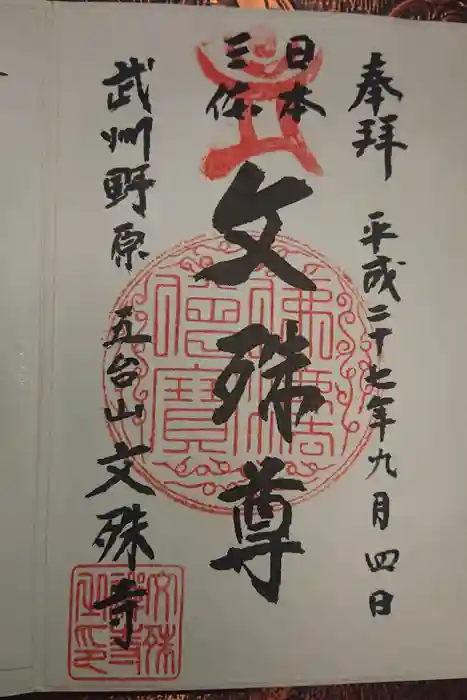 奉拝 平成二十七年九月四日
日本
三体
文殊尊
武州野原 五台山 文殊寺
佛法僧寳